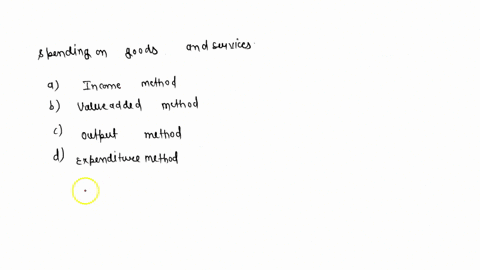 Spending on goods and services.
a) Income method
b) Value added method
c) output method
d) Expenditure method